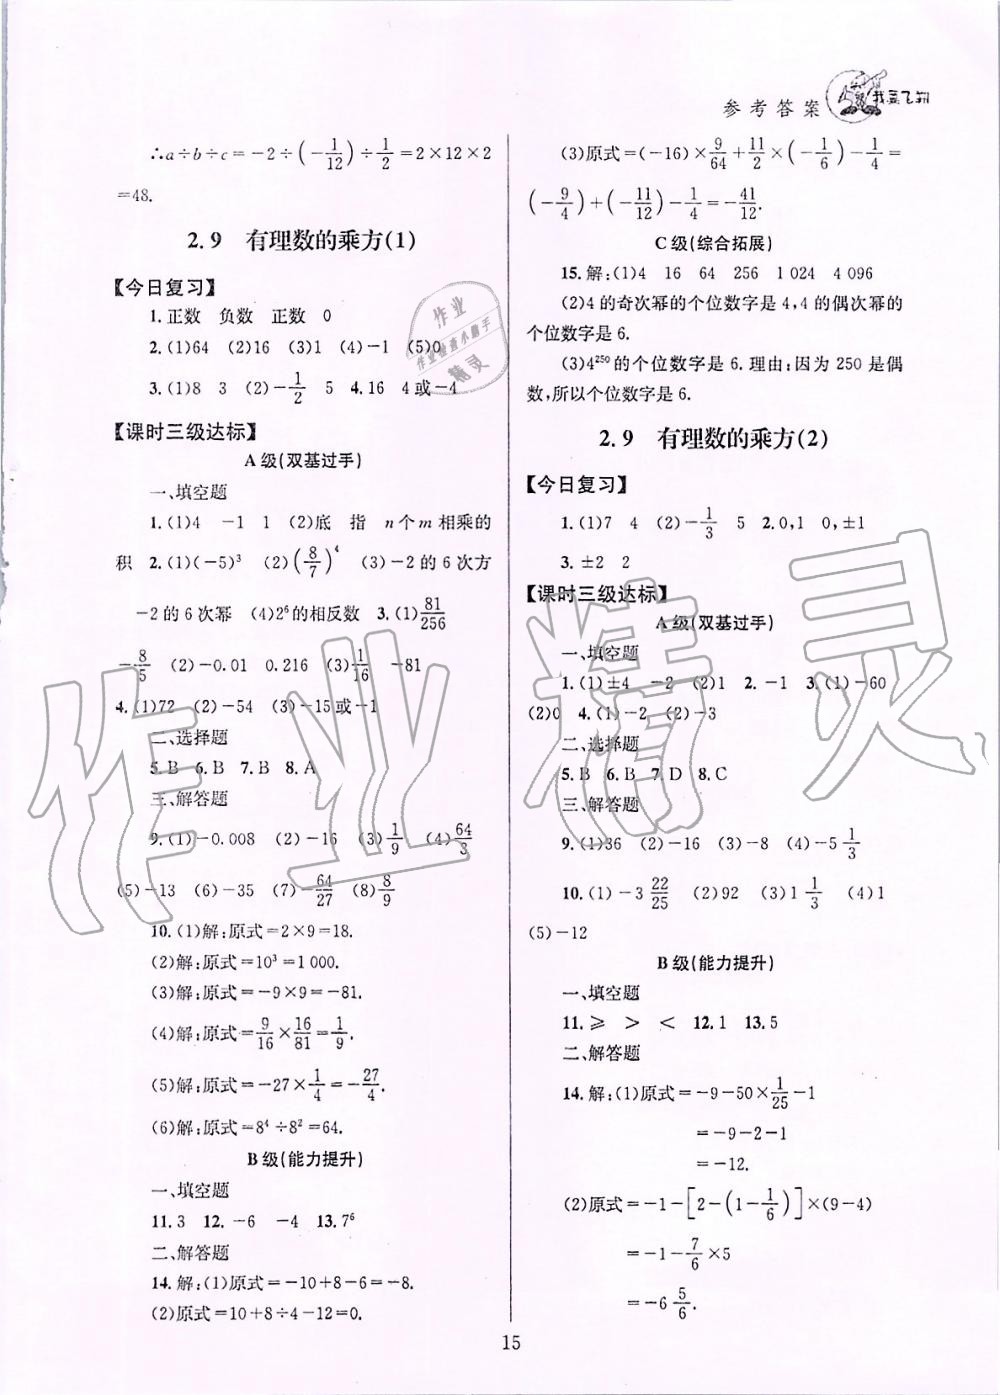 参考答案
∴a÷b÷c=-2÷(-1/12)÷1/2=2×12×2
=48.
2.9 有理数的乘方(1)
【今日复习】
1.正数 负数 正数 0
2.(1)64 (2)16 (3)1 (4)-1 (5)0
3.(1)8 3 (2)-1/2 5 4.16 4或-4
【课时三级达标】
A级(双基过手)
一、填空题
1.(1)4 -1 1 (2)底 指 n个m相乘的
积 2.(1)(-5)³ (2)(8/7)⁴ (3)-2的6次方
-2的6次幂 (4)2⁶的相反数 3.(1)81/256
-8/5 (2)-0.01 0.216 (3)1/16 -81
4.(1)72 (2)-54 (3)-15或-1
二、选择题
5.B 6.B 7.B 8.A
三、解答题
9.(1)-0.008 (2)-16 (3)1/9 (4)64/3
(5)-13 (6)-35 (7)-64/27 (8)8/9
10.(1)解:原式=2×9=18.
(2)解:原式=10³=1 000.
(3)解:原式=-9×9=-81.
(4)解:原式=9/16×16/81=1/9.
(5)解:原式=-27×1/4=-27/4.
(6)解:原式=8⁴÷8²=64.
B级(能力提升)
一、填空题
11.3 12.-6 -4 13.7⁶
二、解答题
14.解:(1)原式=-10+8-6=-8.
(2)原式=10+8÷4-12=0.
(3)原式=(-16)×9/64+11/2×(-1/6)-1/4=
(-9/4)+(-11/12)-1/4=-41/12.
C级(综合拓展)
15.解:(1)4 16 64 256 1 024 4 096
(2)4的奇次幂的个位数字是4,4的偶次幂的
个位数字是6.
(3)4²⁵⁰的个位数字是6.理由:因为250是偶
数,所以个位数字是6.
2.9 有理数的乘方(2)
【今日复习】
1.(1)7 4 (2)-1/3 5 2.0,1 0,±1
3.±2 2
【课时三级达标】
A级(双基过手)
一、填空题
1.(1)±4 -2 (2)1 2.-1 3.(1)-60
(2)0 4.(1)-2 (2)-3
二、选择题
5.B 6.B 7.D 8.C
三、解答题
9.(1)36 (2)-16 (3)-8 (4)-5 1/3
10.(1)-3 22/25 (2)92 (3)1 1/3 (4)1
(5)-12
B级(能力提升)
一、填空题
11.≥ > < 12.1 13.5
二、解答题
14.解:(1)原式=-9-50×1/25-1
=-9-2-1
=-12.
(2)原式=-1-[2-(1-1/6)]×(9-4)
=-1-7/6×5
=-6 5/6.
15
作业精灵
作业
作业检查小助手
精灵